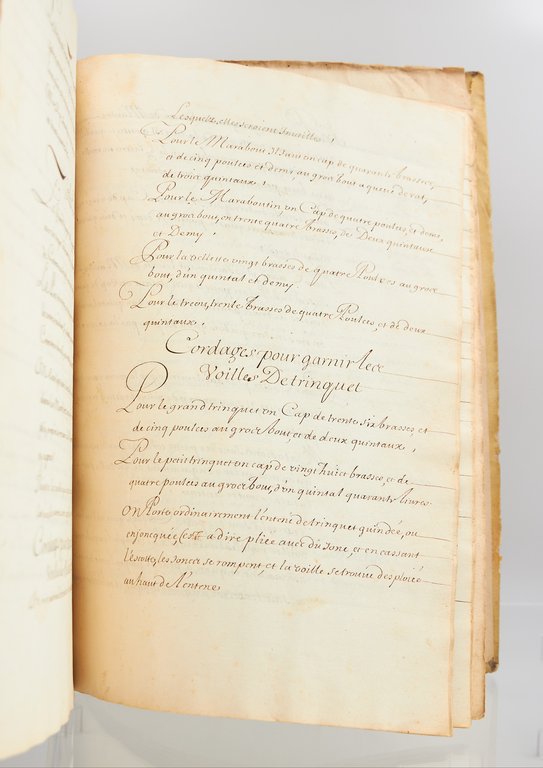 Lesquelles seroient Inutilles,
Pour le Marabout, Il faut un cap de quarante brasses,
et de cinq poulces et demy, au gros bout a queue de rat,
de trois quintaux,
Pour le Maraboutin, un Cap de quatre poulces, et demy,
au gros bout, en trente quatre brasses, de Deux quintaux
et Demy,
Pour la vellette vingt brasses de quatre Poulces au gros
bout, d'un quintal et demy
Pour le treou, trente brasses de quatre Poulces, et de deux
quintaux,
Cordages pour garnir les
Voilles De trinquet
Pour le grand trinquet un Cap de trente six brasses, et
de cinq poulces au gros bout, et de deux quintaux,
Pour le petit trinquet un cap de vingt huict brasses, et de
quatre poulces au gros bout, d'un quintal quarante livres
On Porte ordinairement l'entene de trinquet guindée, ou
enjonquée, C'est a dire pliée avec du jonc, et en cassant
l'escotte, les joncs se rompent, et la voille se trouve desploiée
au haut de l'entene,